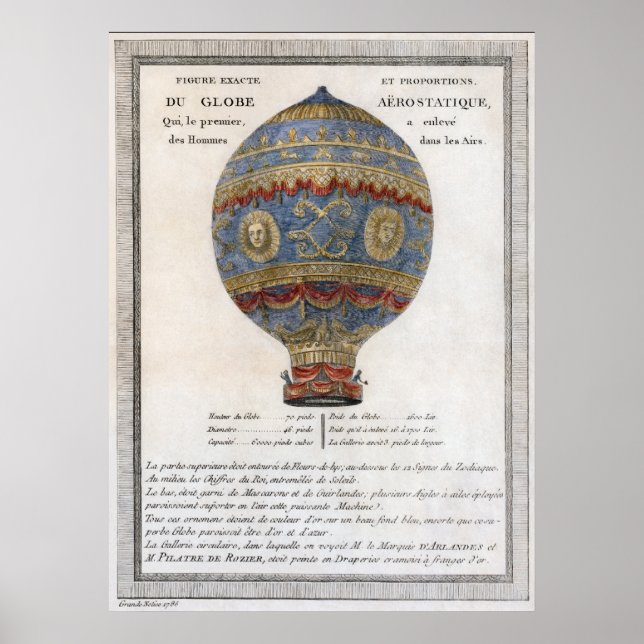 FIGURE EXACTE ET PROPORTIONS.
DU GLOBE AËROSTATIQUE,
Qui, le premier, a enlevé
des Hommes dans les Airs.
Hauteur du Globe ......... 70 pieds Poids du Globe ......... 1600 Liv.
Diametre ............ 46 pieds Poids qu'il à enlevé 16 à 1700 Liv.
Capacité ...... 60000 pieds cubes La Gallerie avoit 3. pieds de largeur.
La partie superieure étoit entourée de Fleurs-de-lys; au-dessous les 12 Signes du Zodiaque.
Au milieu les Chiffres du Roi, entremêlés de Soleils.
Le bas, étoit garni de Mascarons et de Guirlandes; plusieurs Aigles à ailes éployées
paroissoient supporter en l'air cette puissante Machine).
Tous ces ornemens étoient de couleur d'or sur un beau fond bleu, ensorte que ce su-
perbe Globe paroissoit être d'or et d'azur.
La Gallerie circulaire, dans laquelle on voyoit M. le Marquis D'ARLANDES et
M. PILATRE DE ROZIER, etoit peinte en Draperies cramoisi à franges d'or.
1786